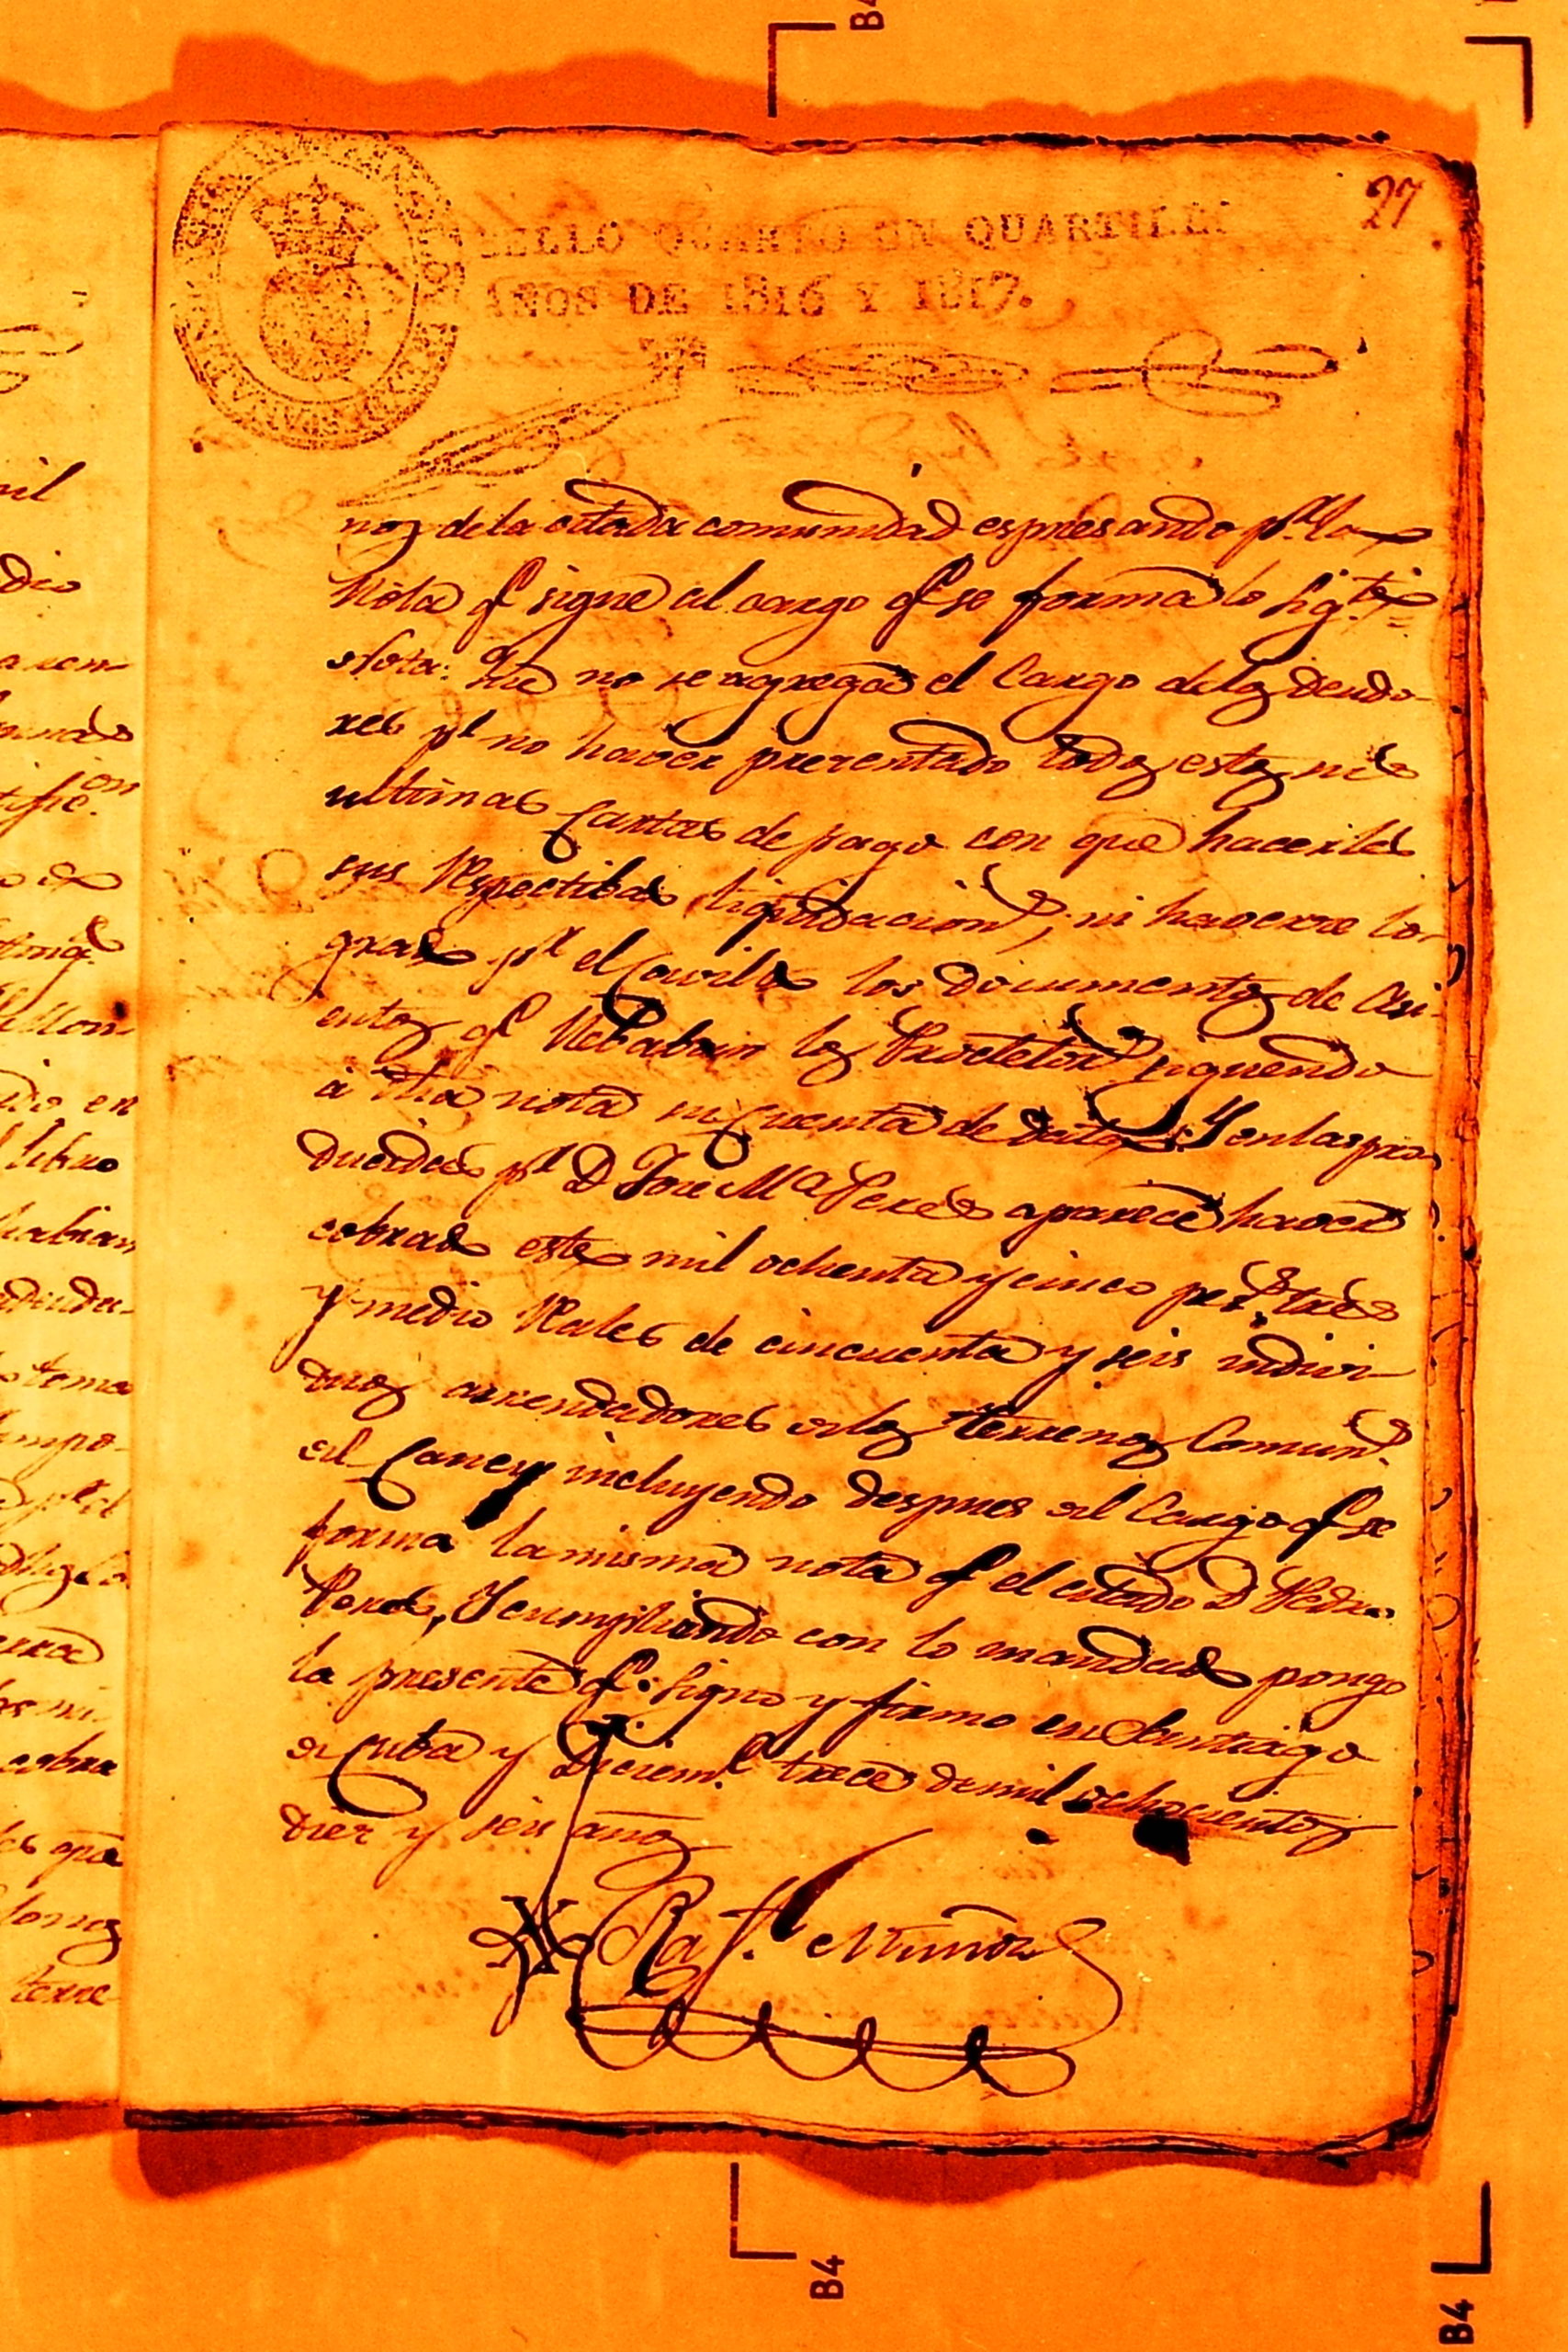 27
SELLO QUARTO UN QUARTILLO
AÑOS DE 1816 Y 1817.
nos de la citada comunidad espresando pr. la
Nota q sigue al cargo q se forma lo sigte. =
Nota: Que no se agrega el Cargo delos deudo-
res pr no haver presentado todos estos sus
ultimas Cartas de pago con que hacerles
sus Respectibas liquidacions, ni haverse lo-
grado pr el Cavildo los documentos de Asi-
entos q llebaban los Protetors, siguendo
á dha nota su Cuenta de data: Y en las pro
ducidas pr D Jose Ma Peres aparece haver
cobrado este mil ochenta y cinco pess. tres
y medio Rales de cincuenta y seis indivi
duos arrendadores de los terrenos Comuns.
del Caney incluyendo despues del Cargo q se
forma la misma nota q el citado D Pedro
Peres, Y cumpliendo con lo mandado pongo
la presente q. signo y firmo en Santiago
de Cuba y Diciem.e trece de mil ochocientos
diez y seis años
Raf.l Muñoz
B4
B4
B4